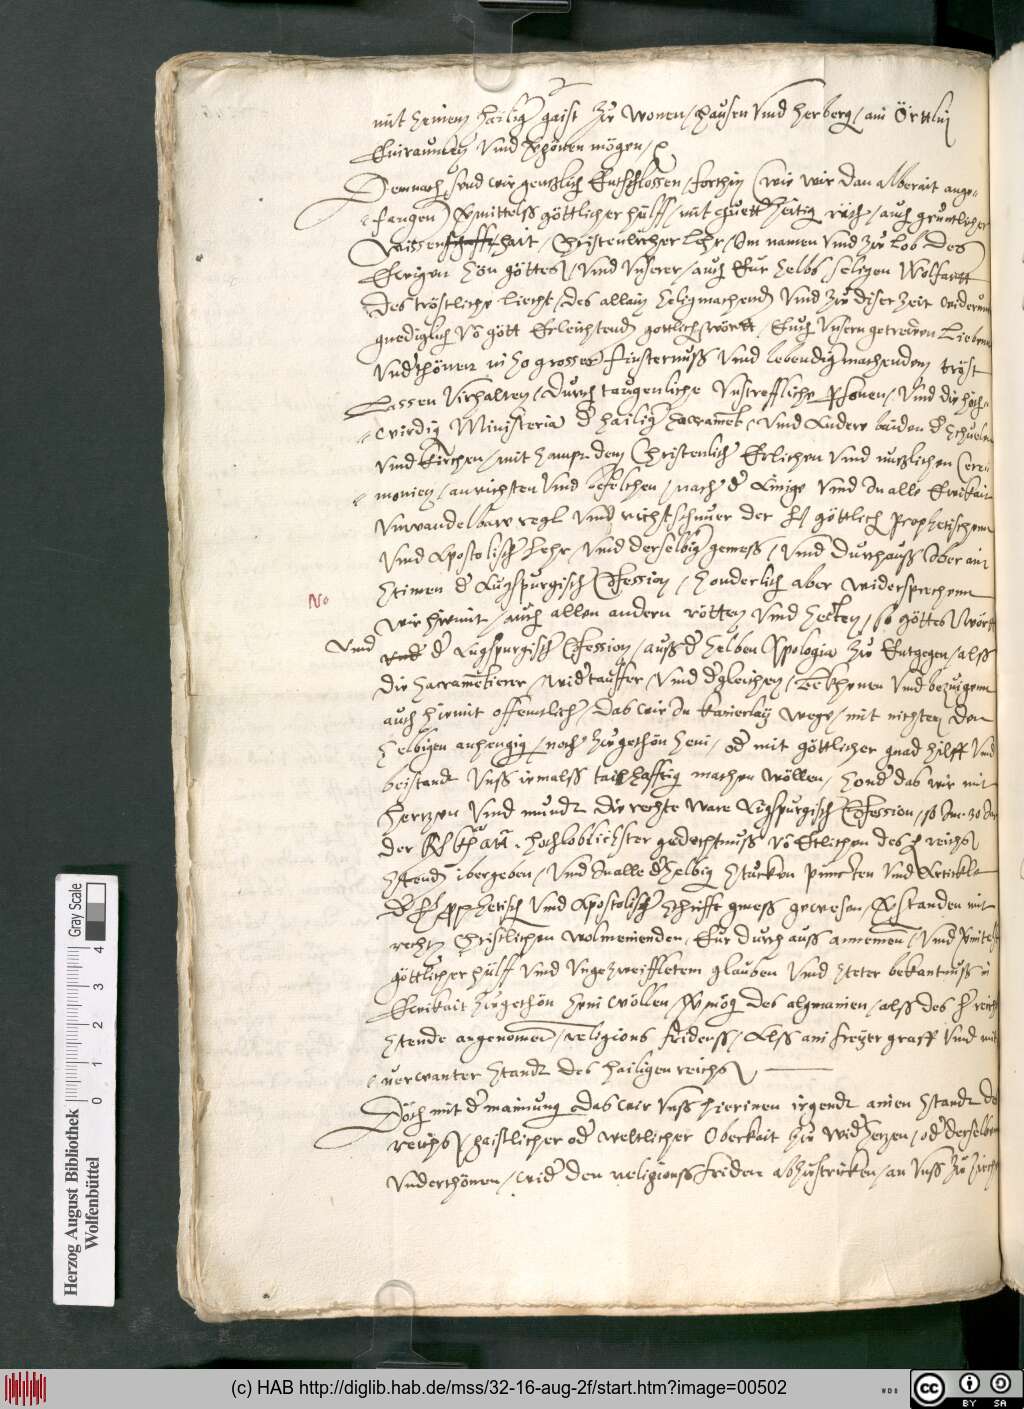 mit seinem hailig gaist zu wonen / hausen vnd herberg / ain Örttlin
Einraumen vnd vergönen mögen /
Demnach seyd wir gentzlich Entschlossen / forthin (wie wir dan alberait ange-
fangen) vermittelss göttlicher hülff / mit zeitig / auch gruntlicher
Wissenhait / Christenlicher Lehr / Im namen vnd zu Lob des
Ewigen Son göttes / vnd vnserer / auch Eur selbs seligen Wolfartt
Des tröstliche liecht / des allain seligmachend vnd zu diser zeit widerum
gnediglich vō gött Erleuchtend gottlichs wörtt / Euch vnsern getrewen Lieben
vnderthönen in so grosser finsternuss vnd lebendigmachendem tröst
Lassen / durch taugenliche vnstreffliche personen / vnd die hoch-
wirdig Ministeria d hailig Sacrament / vnd Andere baiden d Schuelen
vnd Kirchen / mit sampt den Christenlich Erlichen vnd nutzlichen Cere-
monien / anrichten vnd befelchen / nach d Ainige vnd In alle Ewikait
vnwandelbare regl vnd richtschnuer der hl göttlich Prophetischenn
vnd Apostolisch Lehr / vnd derselbig gemess / vnnd durchauss Ober ain
stimen d Augspurgisch Cōfession / sonderlich aber widersprechenn
No
wir hiemit / auch allen andern rötten vnd secten / so göttes wörtt
vnd d Augspurgisch Cōfession / auss d selben Apologia zu Entgegen / alss
die Sacramentierer / widertauffer / vnd dergleichen / Bekhenen vnd bezeugenn
auch hiemit offentlich / das wir In kainerlay wege / mit nichten den
selbigen anhengig / noch zugethön sein / od mit göttlicher gnad hilff vnd
beistandt vnss iemalss tailhafftig machen wöllen / sonder das wir mit
hertzen vnd mundt die rechte ware Augspurgisch Cōfession / so Ano 30 In
der hochloblichster gedechtnuss vō Etlichen des h reichs
Stend ibergeben / vnd In alle derselbig Stucken puncten vnd Artickle
prophetisch vnd Apostolisch Schrifft gmess gewesen / verstanden mit
recht Christlichen wolmeinenden / Eur durch auss annemen / vnd vermitelst
göttlicher hülff vnd vngezweiffletem glauben vnd steter bekantnuss in
Ewikait zugethön sein wöllen / vermög des algemainen / alss des h reichs
Stende angenomen / religions fridenss / Alss ain freyer graff vnd mit
verwanter Standt des hailigen reichs
Doch mit d mainung das wir vnss hierinen irgendt ainen Standt des
reichs / gaistlicher od weltlicher Oberkait zu wid setzen / od derselben
vnderthönen / wid den religionss friden abzustricken / an vnss zu ziech
Herzog August Bibliothek
Wolfenbüttel
0 1 2 3 4
Gray Scale
(c) HAB http://diglib.hab.de/mss/32-16-aug-2f/start.htm?image=00502
WDB
cc
BY SA